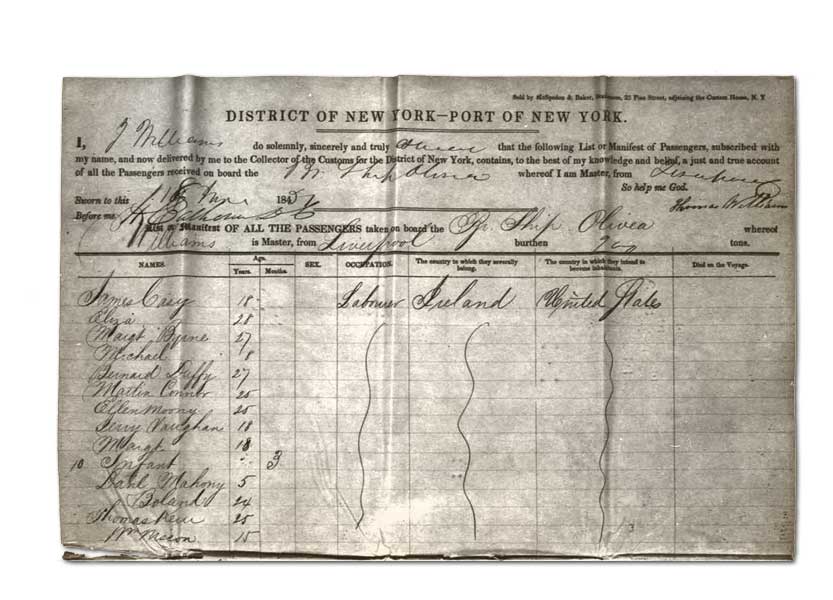 Sold by McSpedon & Baker, Stationers, 25 Pine Street, adjoining the Custom House, N. Y
DISTRICT OF NEW YORK—PORT OF NEW YORK.
I, J Williams do solemnly, sincerely and truly that the following List or Manifest of Passengers, subscribed with
my name, and now delivered by me to the Collector of the Customs for the District of New York, contains, to the best of my knowledge and belief, a just and true account
of all the Passengers received on board the Br. Ship Olivea whereof I am Master, from Liverpool
Sworn to this 184 So help me God.
Before me, Thomas Williams
List or Manifest OF ALL THE PASSENGERS taken on board the Br. Ship Olivea whereof
Williams is Master, from Liverpool burthen tons.
NAMES. Age. Years. Months. SEX. OCCUPATION. The country to which they severally belong. The country in which they intend to become inhabitants. Died on the Voyage.
James Casy 18 Labourer Ireland United States
Eliza 28
Margt Byrne 27
Michael 18
Bernard Duffy 27
Martin Connor 25
Ellen Moony 25
Terry Vaughan 18
Margt 18
10 Infant 3
Danl Mahony 5
Boland 24
Thomas 25
Wm 15